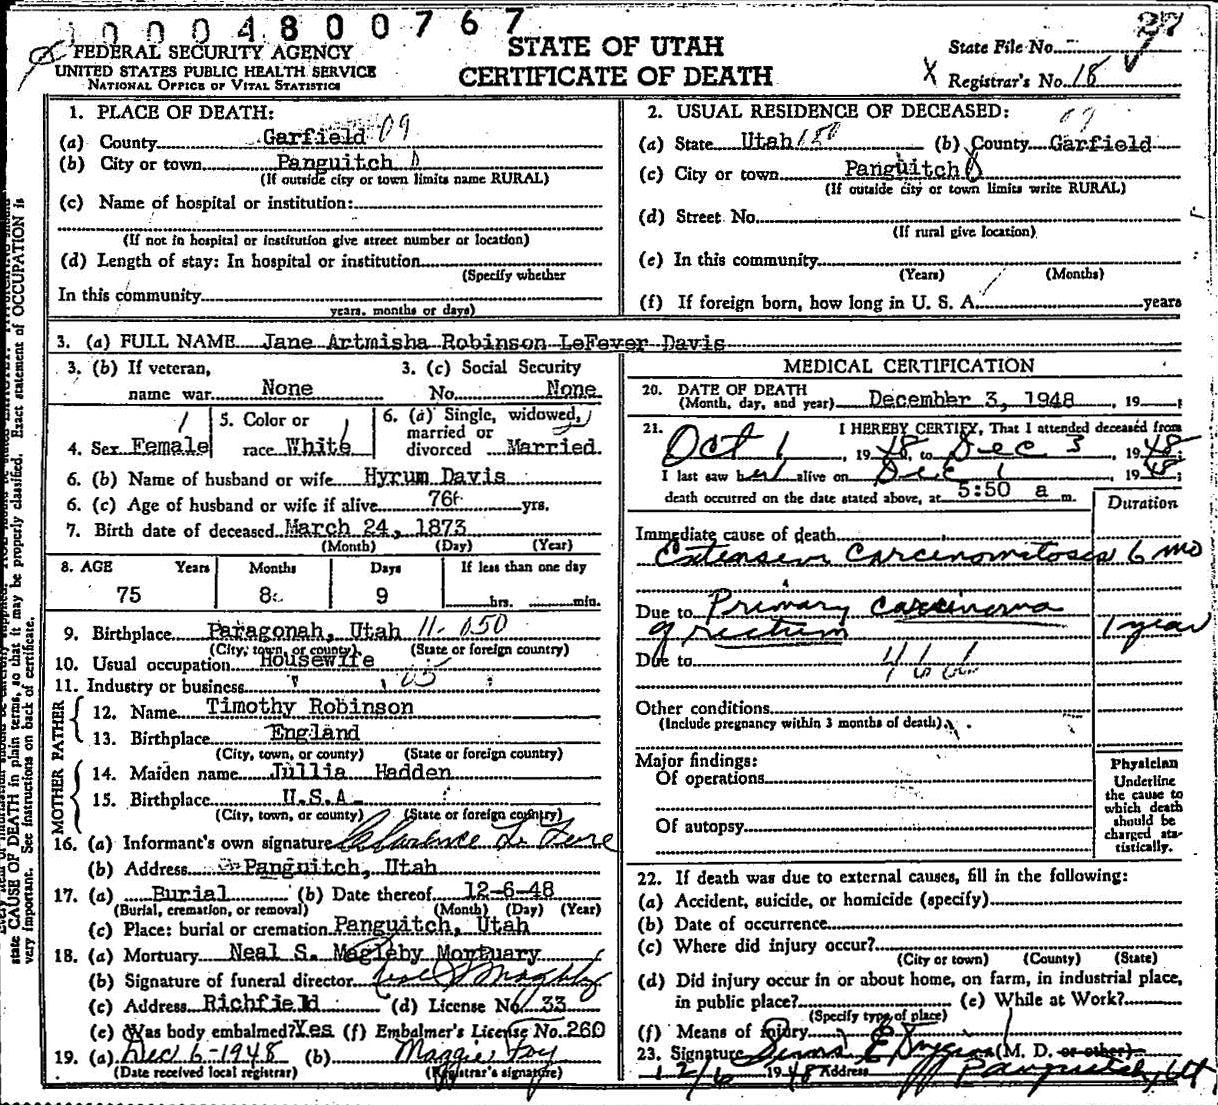 10004800767
FEDERAL SECURITY AGENCY
UNITED STATES PUBLIC HEALTH SERVICE
NATIONAL OFFICE OF VITAL STATISTICS
STATE OF UTAH
CERTIFICATE OF DEATH
State File No. 27
X Registrar's No. 18
1. PLACE OF DEATH:
(a) County Garfield 09
(b) City or town Panguitch
(If outside city or town limits name RURAL)
(c) Name of hospital or institution:
(If not in hospital or institution give street number or location)
(d) Length of stay: In hospital or institution
(Specify whether
In this community
years, months or days)
2. USUAL RESIDENCE OF DECEASED: 09
(a) State Utah 150 (b) County Garfield
(c) City or town Panguitch
(If outside city or town limits write RURAL)
(d) Street No.
(If rural give location)
(e) In this community
(Years) (Months)
(f) If foreign born, how long in U. S. A. years
3. (a) FULL NAME Jane Artmisha Robinson LeFever Davis
3. (b) If veteran,
name war None
3. (c) Social Security
No. None
4. Sex Female
5. Color or
race White
6. (a) Single, widowed,
married or
divorced Married
6. (b) Name of husband or wife Hyrum Davis
6. (c) Age of husband or wife if alive 76 yrs.
7. Birth date of deceased March 24, 1873
(Month) (Day) (Year)
8. AGE Years Months Days If less than one day
75 8 9 hrs. min.
9. Birthplace Paragonah, Utah 11-050
(City, town, or county) (State or foreign country)
10. Usual occupation Housewife
11. Industry or business
FATHER
12. Name Timothy Robinson
13. Birthplace England
(City, town, or county) (State or foreign country)
MOTHER
14. Maiden name Jullia Hadden
15. Birthplace U.S.A.
(City, town, or county) (State or foreign country)
16. (a) Informant's own signature Clarence Le Fevre
(b) Address Panguitch, Utah
17. (a) Burial (b) Date thereof 12-6-48
(Burial, cremation, or removal) (Month) (Day) (Year)
(c) Place: burial or cremation Panguitch, Utah
18. (a) Mortuary Neal S. Magleby Mortuary
(b) Signature of funeral director Neal S Magleby
(c) Address Richfield (d) License No. 33
(e) Was body embalmed? Yes (f) Embalmer's License No. 260
19. (a) Dec 6-1948 (b) Maggie Foy
(Date received local registrar) (Registrar's signature)
MEDICAL CERTIFICATION
20. DATE OF DEATH
(Month, day, and year) December 3, 1948, 19 ;
21. I HEREBY CERTIFY, That I attended deceased from
Oct 1, 1948, to Dec 3, 1948;
I last saw her alive on Dec 1 1948;
death occurred on the date stated above, at 5:50 a m.
Duration
Immediate cause of death
Extensive Carcinomitosis 6 mo
Due to Primary Carcinoma
of rectum 1 year
Due to
Other conditions
(Include pregnancy within 3 months of death)
Major findings:
Of operations
Of autopsy
Physician
Underline
the cause to
which death
should be
charged sta-
tistically.
22. If death was due to external causes, fill in the following:
(a) Accident, suicide, or homicide (specify)
(b) Date of occurrence
(c) Where did injury occur?
(City or town) (County) (State)
(d) Did injury occur in or about home, on farm, in industrial place,
in public place? (e) While at Work?
(Specify type of place)
(f) Means of injury
23. Signature (M. D. or other)
12/6 1948 Address Panguitch, Ut
state CAUSE OF DEATH in plain terms, so that it may be properly classified. Exact statement of OCCUPATION is
very important. See instructions on back of certificate.